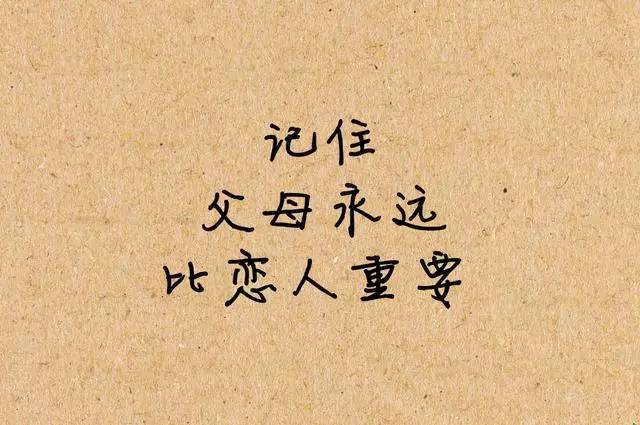 记住
父母永远
比恋人重要